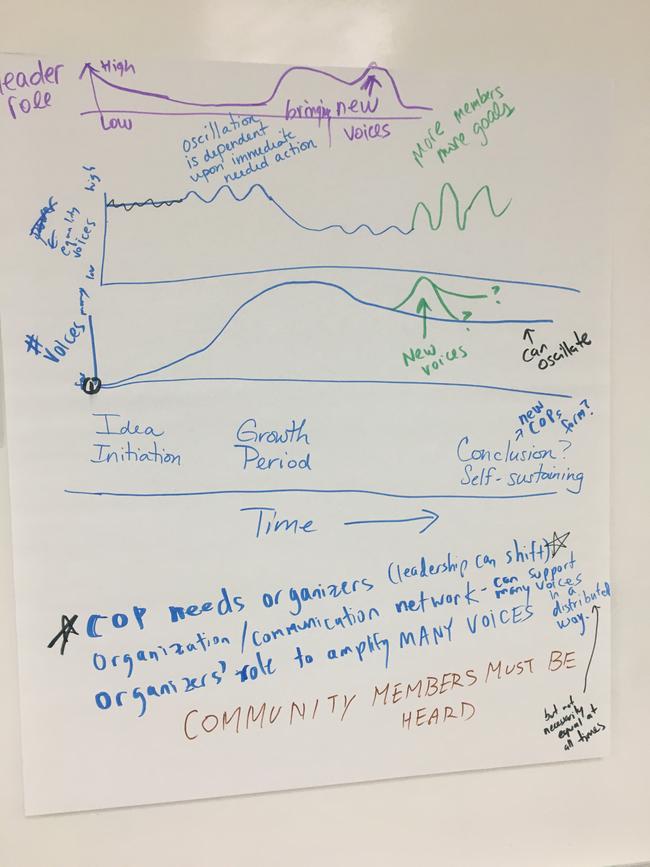 leader
role
High
Low
bringing new
voices
oscillation
is dependent
upon immediate
needed action
More members
more goals
high
equality
voices
low
# voices
many
New
voices
?
?
can
oscillate
Idea
Initiation
Growth
Period
new
COPs
form?
Conclusion?
Self-sustaining
Time
COP needs organizers (leadership can shift)
organization/communication network - can support
many voices
in a
distributed
way.
organizers' role to amplify MANY VOICES
COMMUNITY MEMBERS MUST BE
HEARD
but not
necessarily
equal at
all times